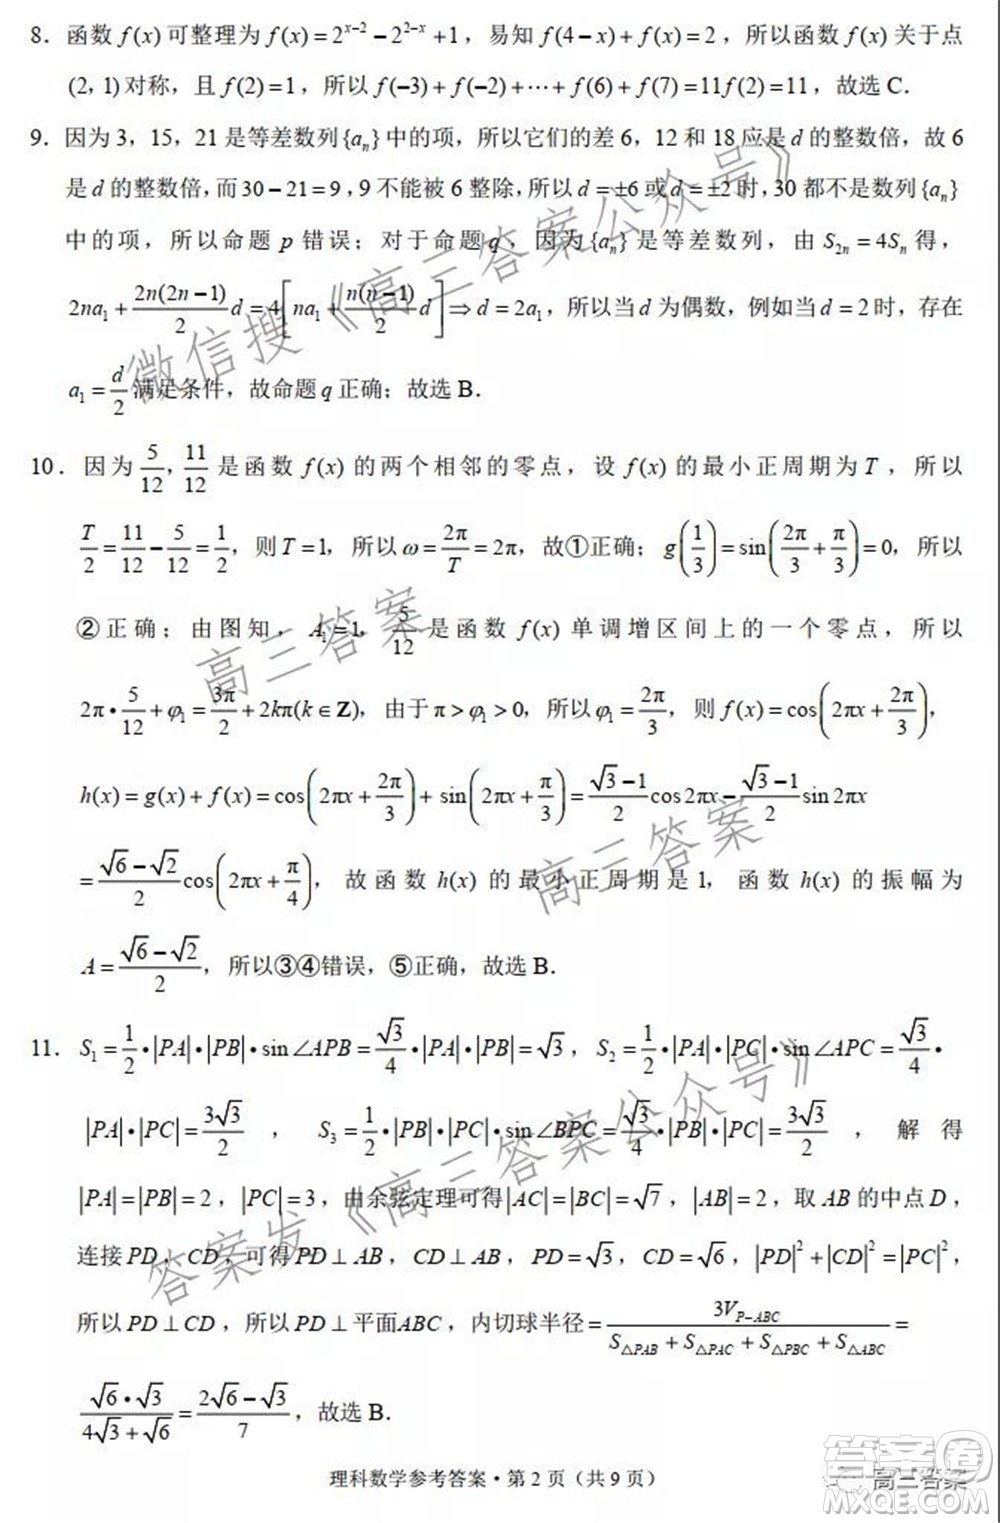 8．函数 f(x) 可整理为 f(x)=2^{x−2}−2^{2−x}+1，易知 f(4−x)+f(x)=2，所以函数 f(x) 关于点
(2, 1) 对称，且 f(2)=1，所以 f(−3)+f(−2)+⋯+f(6)+f(7)=11f(2)=11，故选 C．
9．因为 3，15，21 是等差数列{a_n} 中的项，所以它们的差 6，12 和 18 应是 d 的整数倍，故 6
是 d 的整数倍，而 30−21=9，9 不能被 6 整除，所以 d=±6 或 d=±2 时，30 都不是数列{a_n}
中的项，所以命题 p 错误；对于命题 q，因为{a_n} 是等差数列，由 S_{2n}=4S_n 得，
2na_1+\frac{2n(2n−1)}{2}d=4[na_1+\frac{n(n−1)}{2}d]⇒d=2a_1，所以当 d 为偶数，例如当 d=2 时，存在
a_1=\frac{d}{2}满足条件，故命题 q 正确；故选 B．
10．因为 \frac{5}{12}，\frac{11}{12} 是函数 f(x) 的两个相邻的零点，设 f(x) 的最小正周期为 T，所以
\frac{T}{2}=\frac{11}{12}−\frac{5}{12}=\frac{1}{2}，则 T=1，所以 ω=\frac{2π}{T}=2π，故①正确；g(\frac{1}{3})=sin(\frac{2π}{3}+\frac{π}{3})=0，所以
②正确；由图知，A_1=1，\frac{5}{12} 是函数 f(x) 单调增区间上的一个零点，所以
2π•\frac{5}{12}+φ_1=\frac{3π}{2}+2kπ(k∈Z)，由于 π>φ_1>0，所以 φ_1=\frac{2π}{3}，则 f(x)=cos(2πx+\frac{2π}{3})，
h(x)=g(x)+f(x)=cos(2πx+\frac{2π}{3})+sin(2πx+\frac{π}{3})=\frac{√3−1}{2}cos2πx−\frac{√3−1}{2}sin2πx
=\frac{√6−√2}{2}cos(2πx+\frac{π}{4})，故函数 h(x) 的最小正周期是 1，函数 h(x) 的振幅为
A=\frac{√6−√2}{2}，所以③④错误，⑤正确，故选 B．
11．S_1=\frac{1}{2}•|PA|•|PB|•sin∠APB=\frac{√3}{4}•|PA|•|PB|=√3，S_2=\frac{1}{2}•|PA|•|PC|•sin∠APC=\frac{√3}{4}•
|PA|•|PC|=\frac{3√3}{2}，S_3=\frac{1}{2}•|PB|•|PC|•sin∠BPC=\frac{√3}{4}•|PB|•|PC|=\frac{3√3}{2}，解得
|PA|=|PB|=2，|PC|=3，由余弦定理可得|AC|=|BC|=√7，|AB|=2，取 AB 的中点 D，
连接 PD，CD，可得 PD⊥AB，CD⊥AB，PD=√3，CD=√6，|PD|^2+|CD|^2=|PC|^2，
所以 PD⊥CD，所以 PD⊥平面ABC，内切球半径=\frac{3V_{P−ABC}}{S_{△PAB}+S_{△PAC}+S_{△PBC}+S_{△ABC}}=
\frac{√6•√3}{4√3+√6}=\frac{2√6−√3}{7}，故选 B．
理科数学参考答案·第 2 页（共 9 页）
微信搜《高三答案公众号》
高三答案
高三答案
答案发《高三答案公众号》
高三答案
答案圈
MXQE.COM